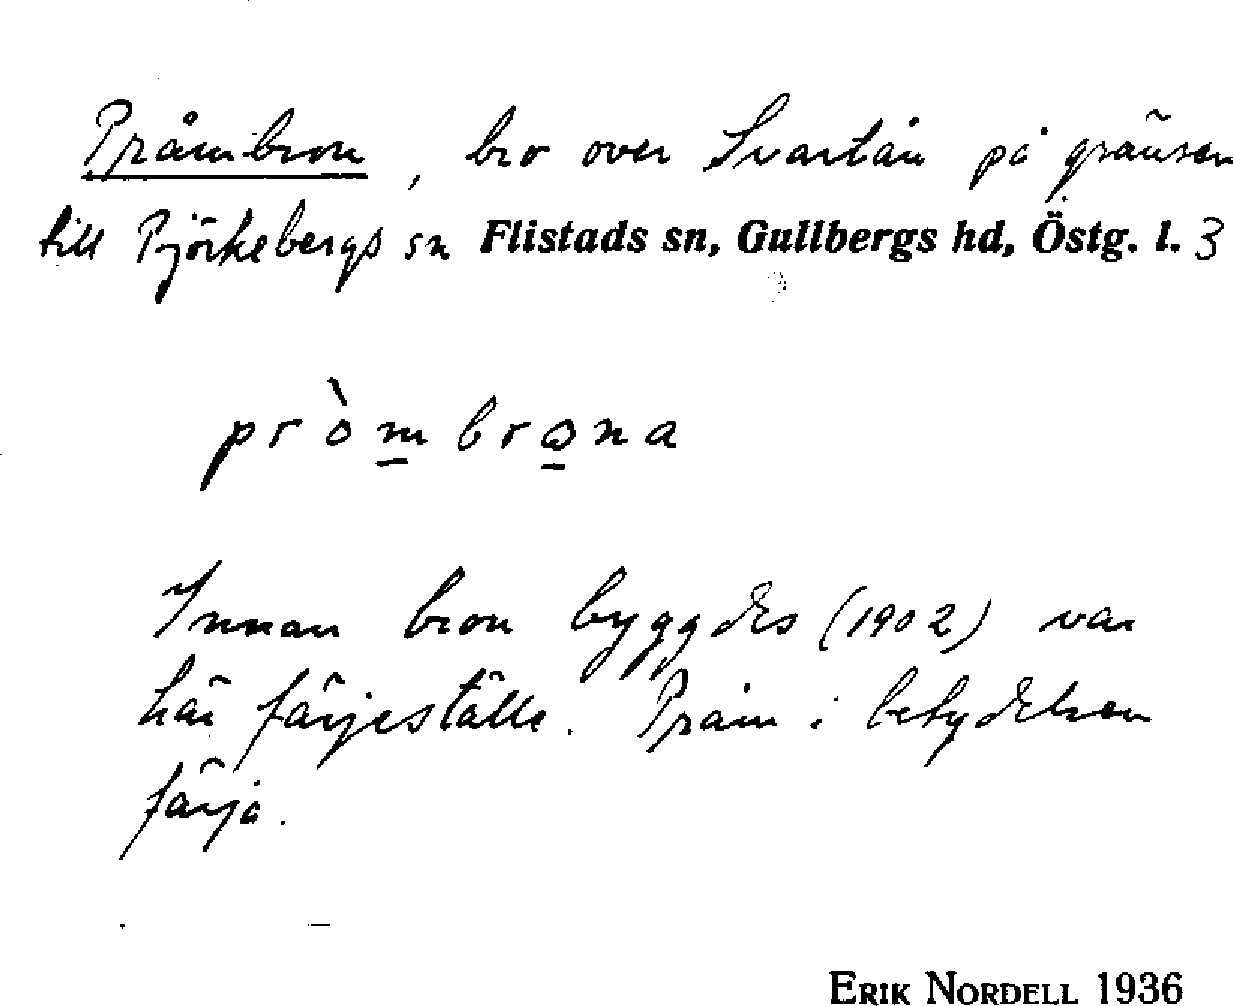 Pråmbron, bro över Svartån på gränsen
till Björkebergs sn Flistads sn, Gullbergs hd, Östg. l. 3
pròm̲brꙍ̲na
Innan bron byggdes (1902) var
här färjeställe. Pråm i betydelsen
färja.
ERIK NORDELL 1936